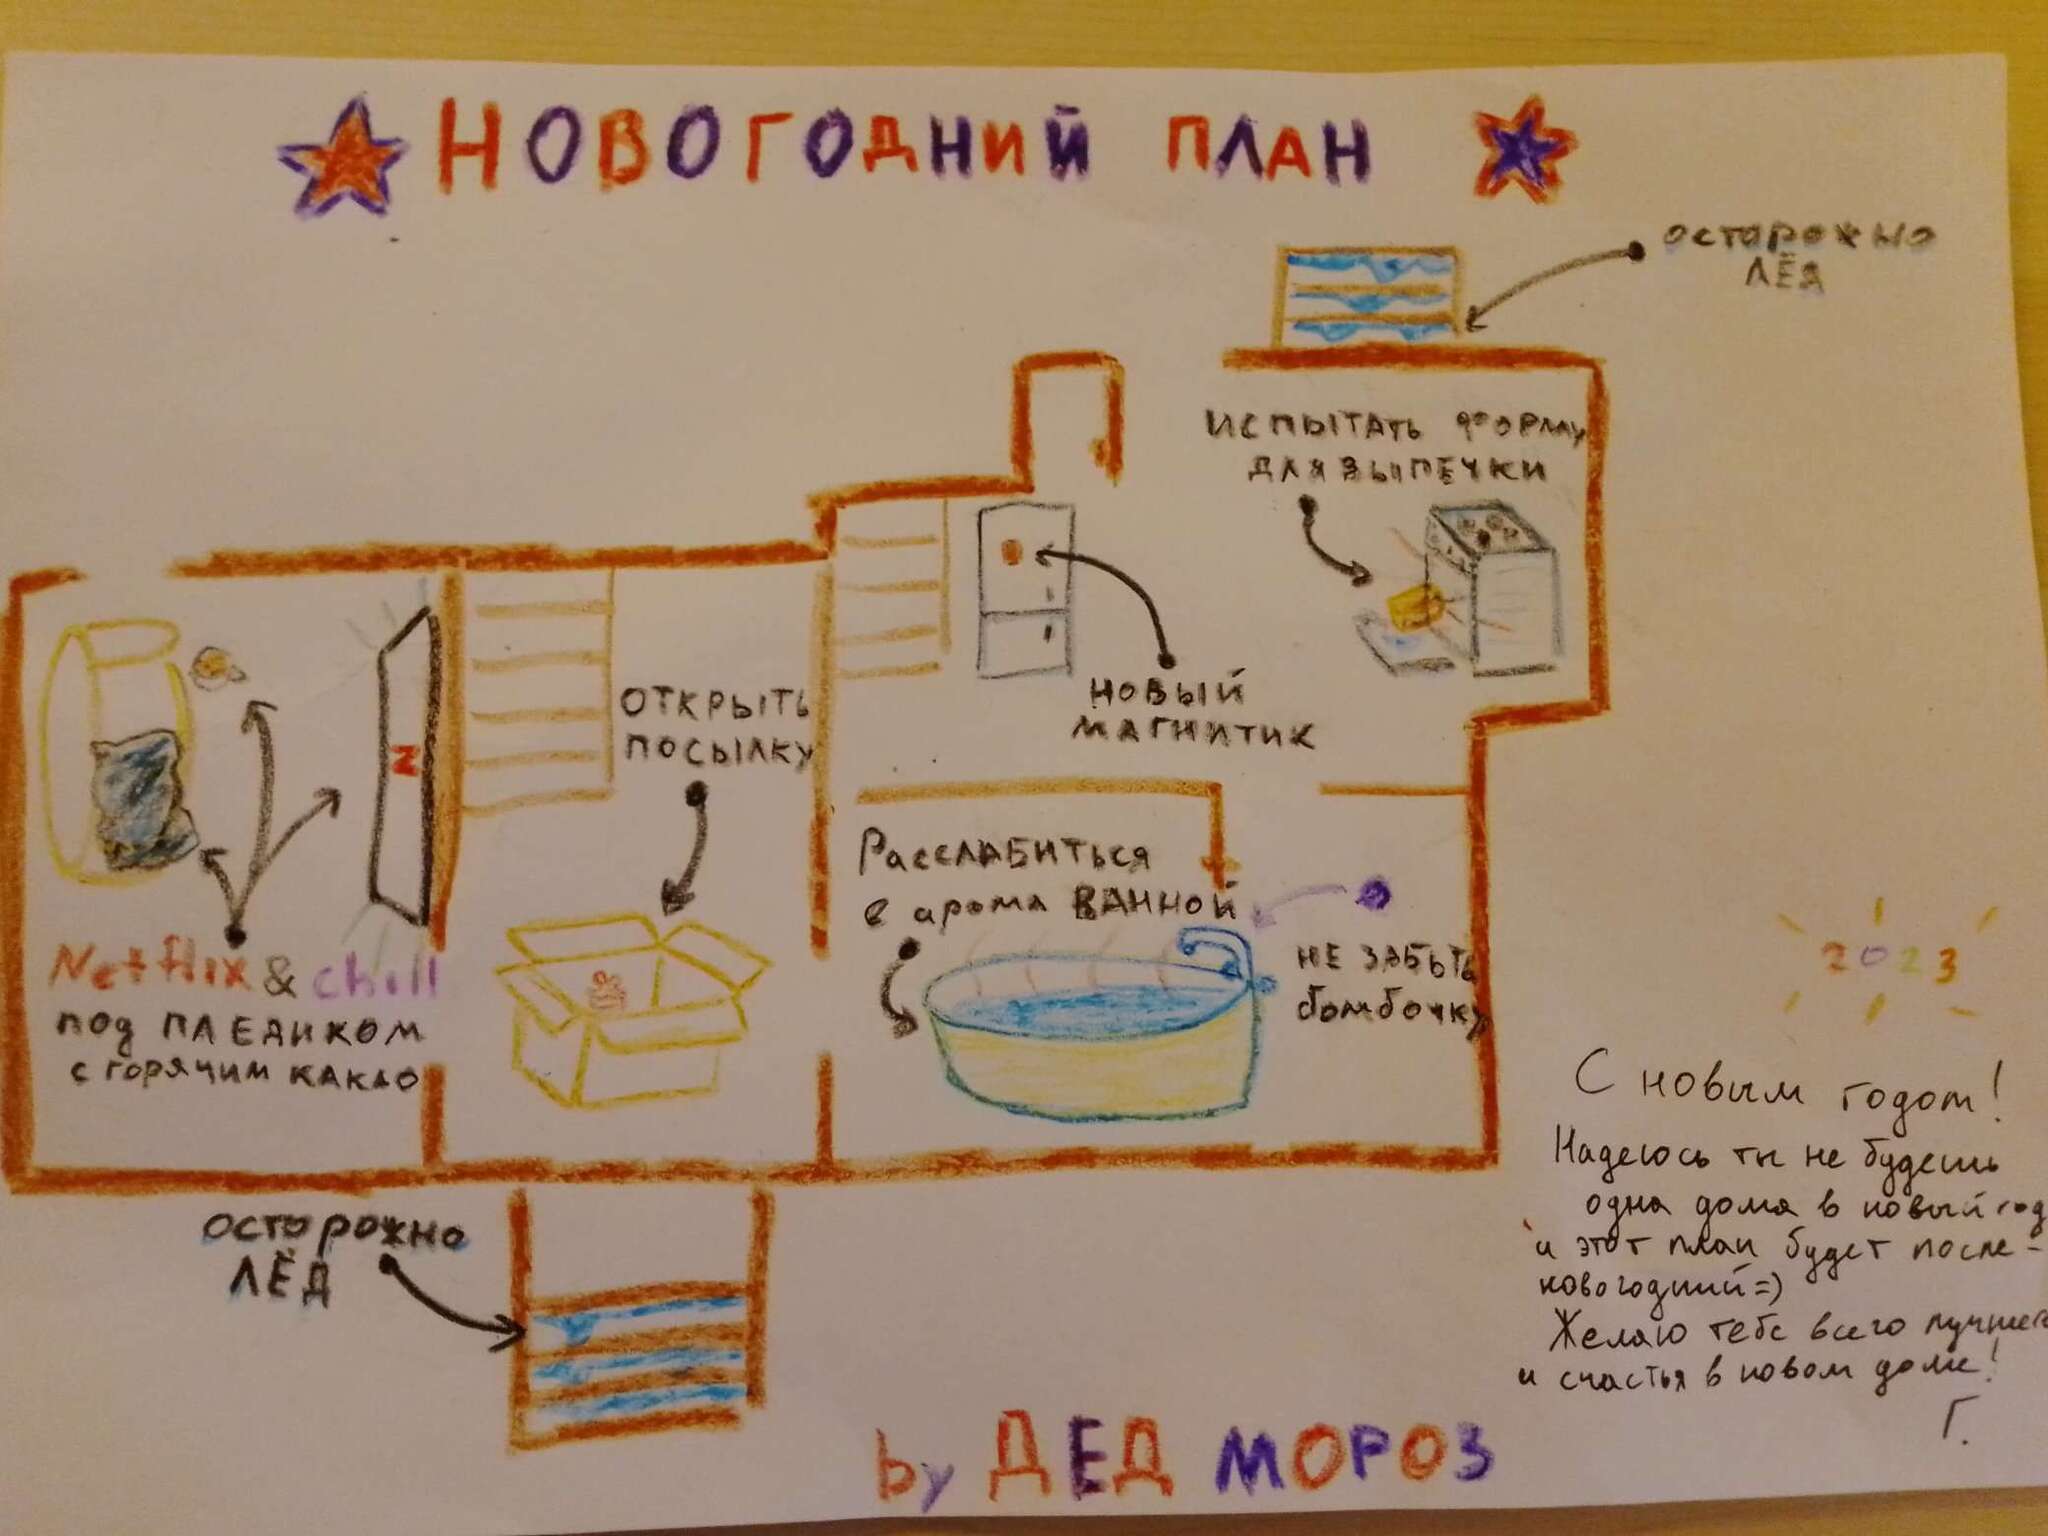 НОВОГОДНИЙ ПЛАН
ОСТОРОЖНО
ЛЁД
ИСПЫТАТЬ ФОРМУ
ДЛЯ ВЫПЕЧКИ
НОВЫЙ
МАГНИТИК
ОТКРЫТЬ
ПОСЫЛКУ
N
Расслабиться
в арома ВАННОЙ
НЕ ЗАБЫТЬ
бомбочку
Netflix & chill
под ПЛЕДИКОМ
с горячим КАКАО
ОСТОРОЖНО
ЛЁД
2023
С новым годом!
Надеюсь ты не будешь
одна дома в новый год
и этот план будет после-
новогодний =)
Желаю тебе всего лучшего
и счастья в новом доме!
Г.
by ДЕД МОРОЗ